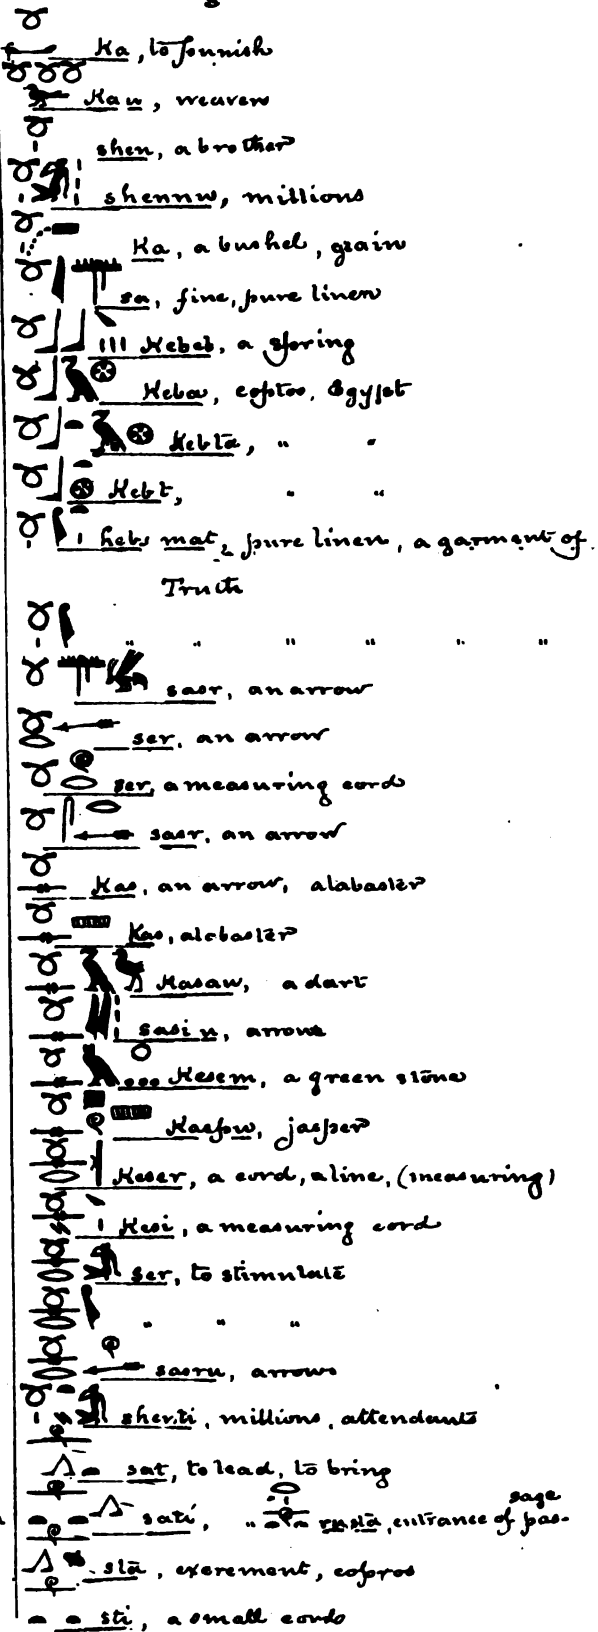 Ka, to furnish
Kau, weaven
shen, a brother
shennw, millions
Ka, a bushel, grain
sa, fine, pure linen
Kebeb, a spring
Keba, coptos, Egypt
Kebta, " "
Kebt, " "
hebs mat, pure linen, a garment of
Truth
" " " " " "
sasr, an arrow
ser, an arrow
ser, a measuring cord
sasr, an arrow
Kas, an arrow, alabaster
Kas, alabaster
Kasaw, a dart
sasin, arrows
Kesem, a green stone
Kaspw, jasper
Keser, a cord, a line, (measuring)
Kesi, a measuring cord
ser, to stimulate
" " "
sasru, arrows
sherti, millions, attendants
sat, to lead, to bring
sati, " rusta, entrance of pas-
sage
sta, excrement, copros
sti, a small cords